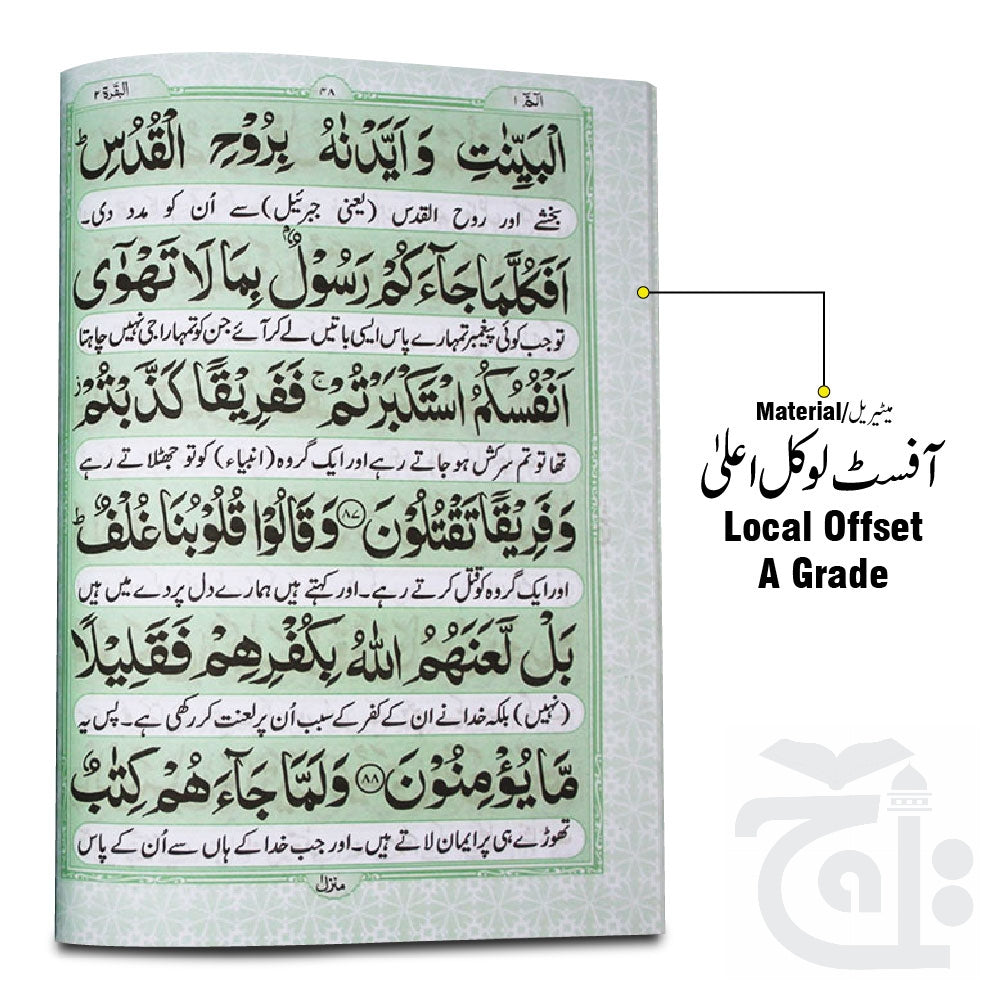 الٓمّٓ ١
٤٨
البقرة ٢
الْبَيِّنٰتِ وَاَيَّدْنٰهُ بِرُوْحِ الْقُدُسِ ؕ
بخشے اور روح القدس (یعنی جبرئیل) سے اُن کو مدد دی۔
اَفَكُلَّمَا جَآءَكُمْ رَسُوْلٌۢ بِمَا لَا تَهْوٰۤى
تو جب کوئی پیغمبر تمہارے پاس ایسی باتیں لے کر آئے جن کو تمہارا جی نہیں چاہتا
اَنْفُسُكُمُ اسْتَكْبَرْتُمْ ۚ فَفَرِيْقًا كَذَّبْتُمْ ؗ
تھا تو تم سرکش ہو جاتے رہے اور ایک گروہ (انبیاء) کو تو جھٹلاتے رہے
وَفَرِيْقًا تَقْتُلُوْنَ ﴿٨٧﴾ وَقَالُوْا قُلُوْبُنَا غُلْفٌ ؕ
اور ایک گروہ کو قتل کرتے رہے۔ اور کہتے ہیں ہمارے دل پردے میں ہیں
بَلْ لَّعَنَهُمُ اللّٰهُ بِكُفْرِهِمْ فَقَلِيْلًا
(نہیں) بلکہ خدا نے ان کے کفر کے سبب اُن پر لعنت کر رکھی ہے۔ پس یہ
مَّا يُؤْمِنُوْنَ ﴿٨٨﴾ وَلَمَّا جَآءَهُمْ كِتٰبٌ
تھوڑے ہی پر ایمان لاتے ہیں۔ اور جب خدا کے ہاں سے اُن کے پاس
منزل ١
Material/میٹیریل
آفسٹ لوکل اعلیٰ
Local Offset
A Grade